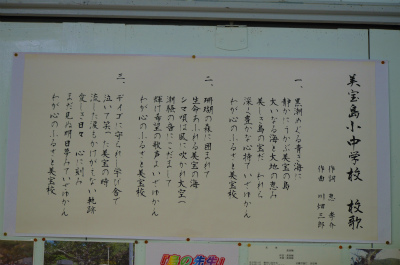 美宝島小中学校 校歌
作詞 恵 孝介
作曲 川畑三郎
一、黒潮めぐる青き海に
静かにうかぶ美宝の島
大いなる海と大地の恵み
美しき島の宝だ われら
深く豊かな心持ていざゆかん
わが心のふるさと美宝校
二、珊瑚の森に囲まれて
生命あふれる美宝の海
シマ唄は風に吹かれ大空へ
潮騒の音にこだまして
輝け希望の歌声よいざゆかん
わが心のふるさと美宝校
三、デイゴに守られし学び舎で
泣いて笑った美宝の時
流した涙もかけがえない軌跡
愛しき日々 心に刻み
まだ見ぬ明日夢みていざゆかん
わが心のふるさと美宝校